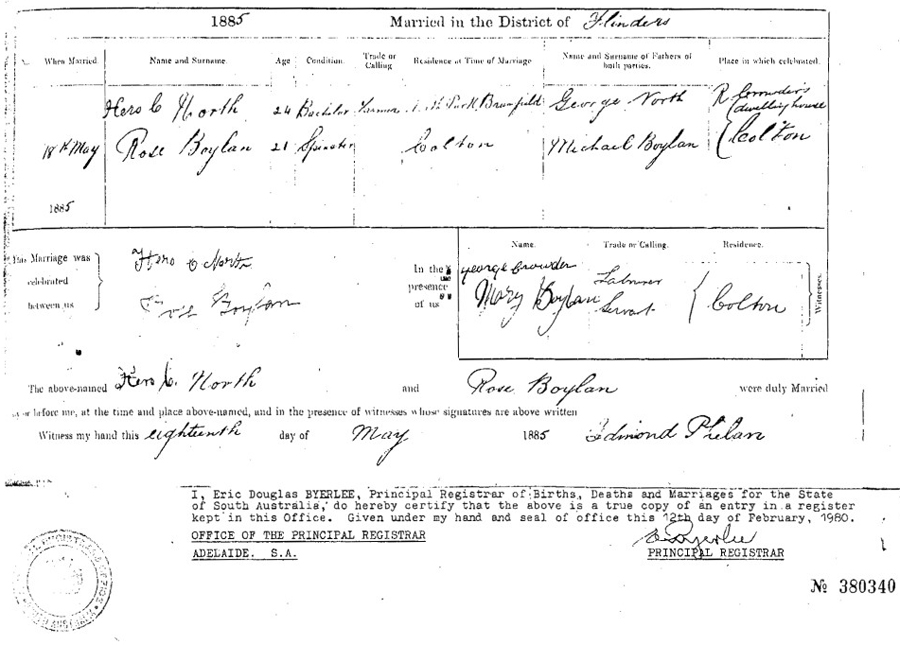 1885 Married in the District of Flinders
When Married. Name and Surname. Age Condition. Trade or Calling Residence at Time of Marriage Name and Surname of Fathers of both parties. Place in which celebrated.
Hero C North 24 Bachelor Farmer Park Bramfield George North R Crowder's dwelling house
18th May Rose Boylan 21 Spinster Colton Michael Boylan Colton
1885
Name. Trade or Calling. Residence.
This Marriage was celebrated between us
Hero C North
Rose Boylan
In the presence of us
George Crowder Labourer
Mary Boylan Servant Colton
Witnesses.
The above-named Hero C. North and Rose Boylan were duly Married
by or before me, at the time and place above-named, and in the presence of witnesses whose signatures are above written
Witness my hand this eighteenth day of May 1885 Edmond Phelan
I, Eric Douglas BYERLEE, Principal Registrar of Births, Deaths and Marriages for the State
of South Australia, do hereby certify that the above is a true copy of an entry in a register
kept in this Office. Given under my hand and seal of office this 12th day of February, 1980.
OFFICE OF THE PRINCIPAL REGISTRAR
ADELAIDE. S.A.
PRINCIPAL REGISTRAR
№ 380340